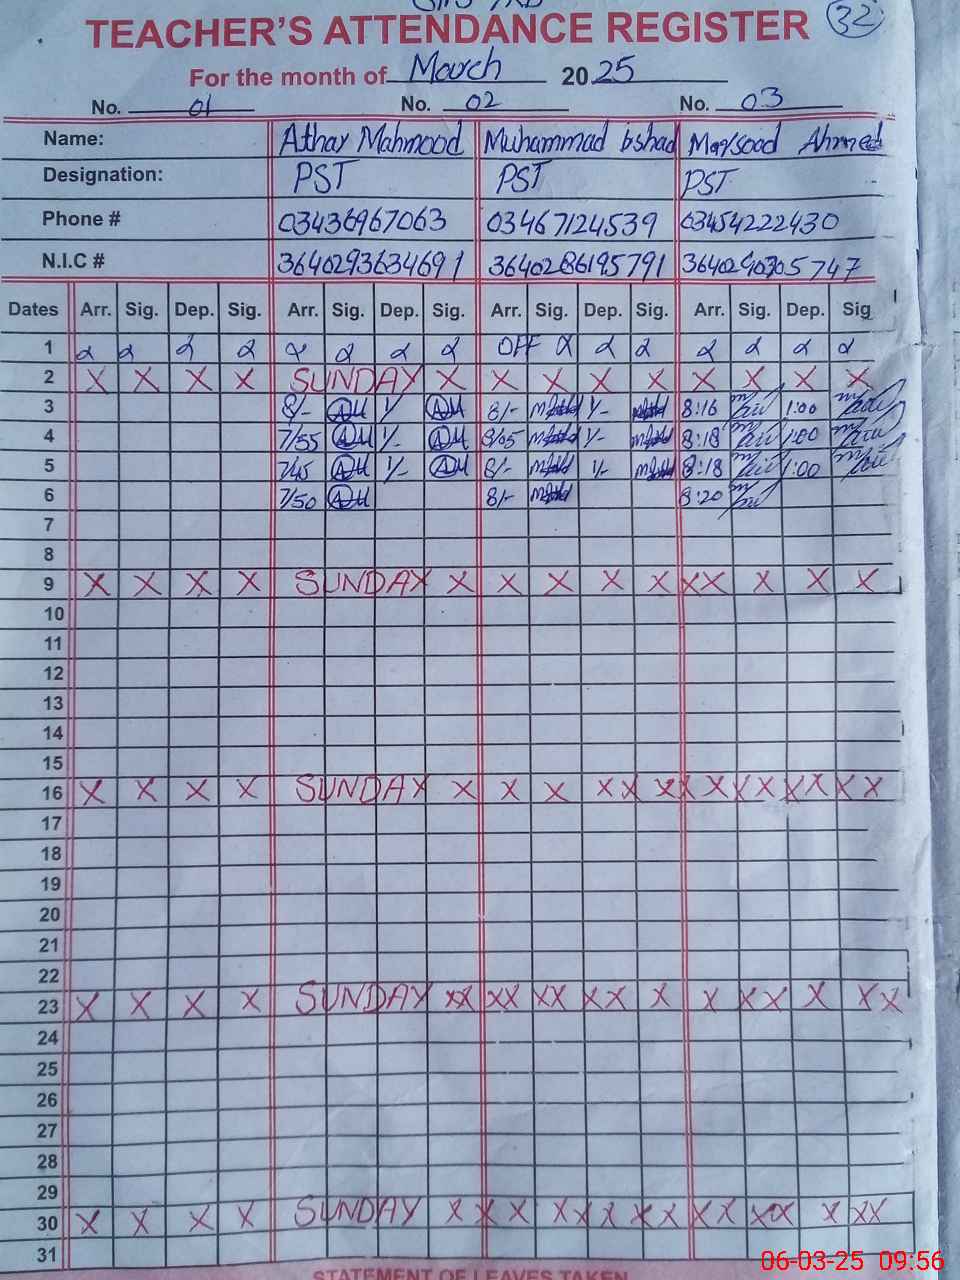 TEACHER'S ATTENDANCE REGISTER 32
For the month of March 2025
No. 01 No. 02 No. 03
Name: Athar Mahmood Muhammad Ahmed
Designation: PST PST PST
Phone # 03436967063 03467124539 03454222430
N.I.C # 3640293634691 3640286195791
Dates Arr. Sig. Dep. Sig. Arr. Sig. Dep. Sig. Arr. Sig. Dep. Sig. Arr. Sig. Dep. Sig
1 OFF
2 X X X X SUNDAY X X X X X X X X X
3 8/- AM 1/- AM 8/- 1/- 8:16 1:00
4 7/55 AM 1/- AM 8/05 1/- 8:18 1:00
5 7/45 AM 1/- AM 8/- 1/- 8:18 1:00
6 7/50 AM 8/- 8:20
7
8
9 X X X X SUNDAY X X X X X X X X X X
10
11
12
13
14
15
16 X X X X SUNDAY X X X X X X X X X X X X X X X
17
18
19
20
21
22
23 X X X X SUNDAY X X X X X X X X X X X X X X X
24
25
26
27
28
29
30 X X X X SUNDAY X X X X X X X X X X X X X X X
31
STATEMENT OF LEAVES TAKEN
06-03-25 09:56